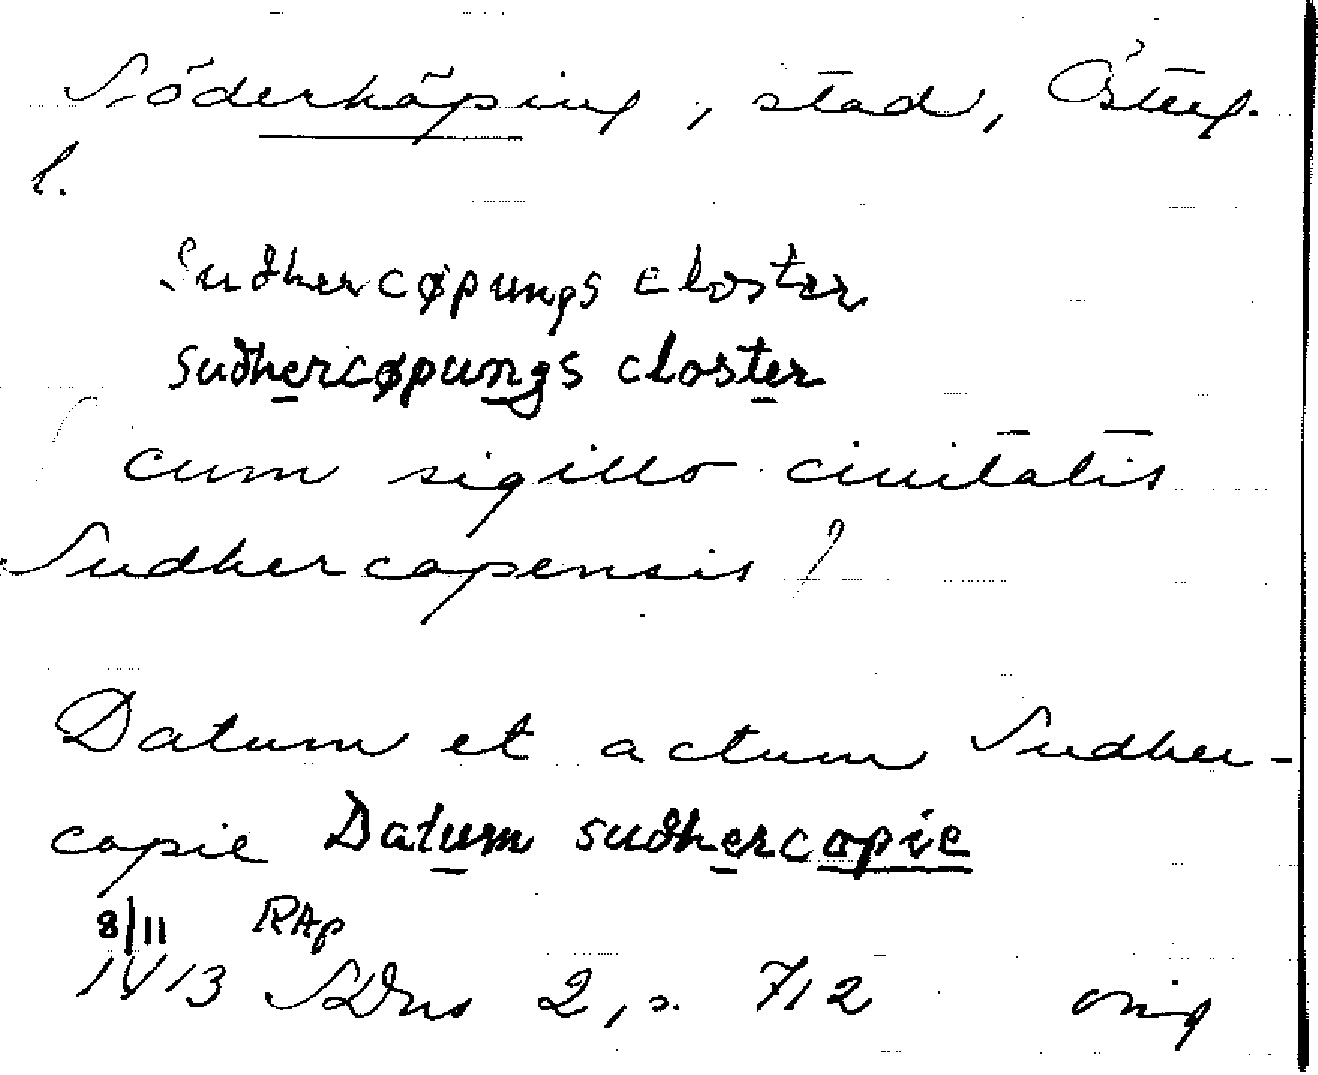 Söderköping, stad, Österg.
l.
Sudhercøpungs closter
sudhercøpungs closter
cum sigillo ciuitatis
Sudhercopensis
Datum et actum Sudher-
copie Datum sudhercopie
8/11 RAp
1413 SDns 2, s. 712 orig